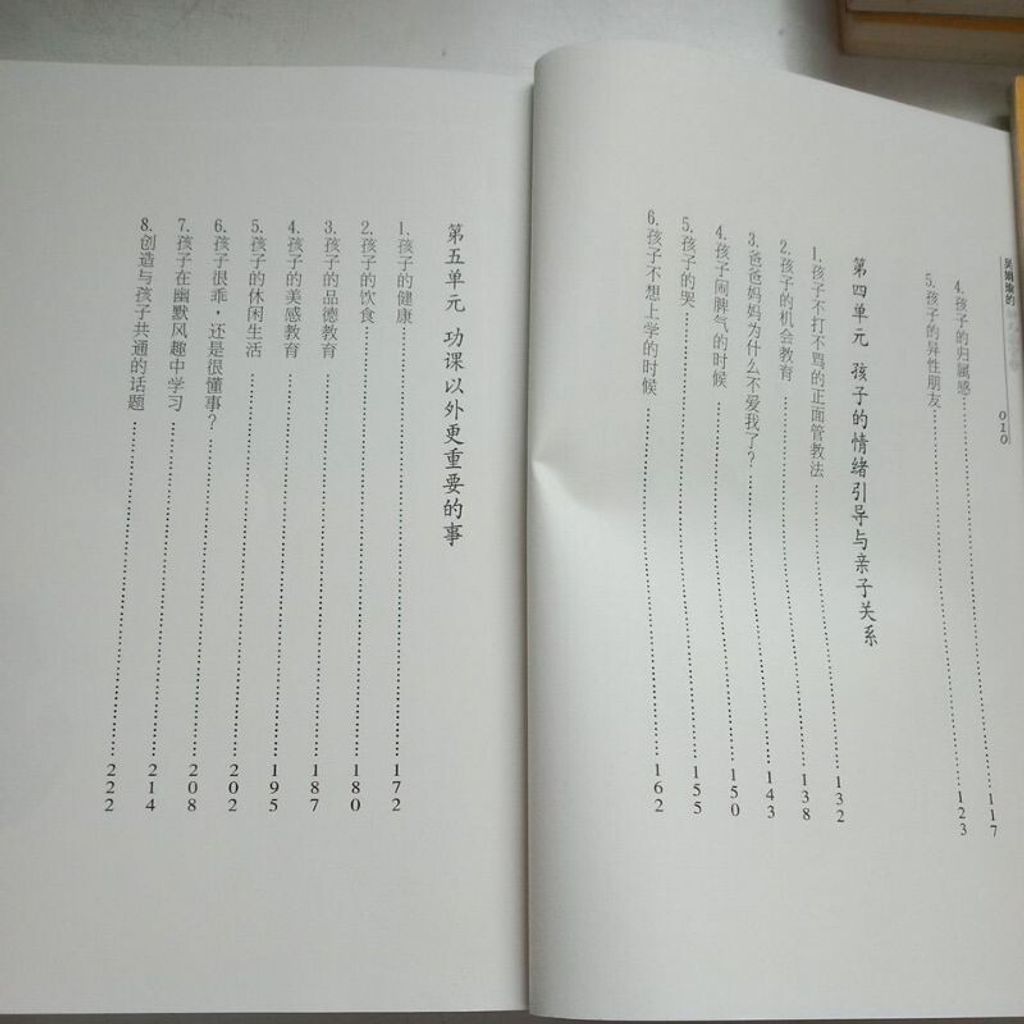 吴娟瑜的
010
4. 孩子的归属感……117
5. 孩子的异性朋友……123
第四单元 孩子的情绪引导与亲子关系
1. 孩子不打不骂的正面管教法……132
2. 孩子的机会教育……138
3. 爸爸妈妈为什么不爱我了？……143
4. 孩子闹脾气的时候……150
5. 孩子的哭……155
6. 孩子不想上学的时候……162
第五单元 功课以外更重要的事
1. 孩子的健康……172
2. 孩子的饮食……180
3. 孩子的品德教育……187
4. 孩子的美感教育……195
5. 孩子的休闲生活……202
6. 孩子很乖·还是很懂事？……208
7. 孩子在幽默风趣中学习……214
8. 创造与孩子共通的话题……222